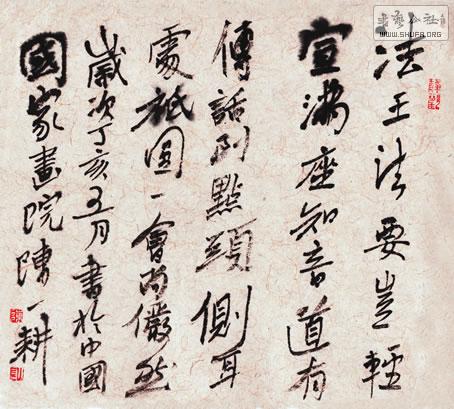 法王法要豈輕
宣滿座知音道有
傳話到點頭側耳
處祇園一會尚儼然
歲次丁亥五月書於中國
國家畫院陳一耕
WWW.SHUFA.ORG